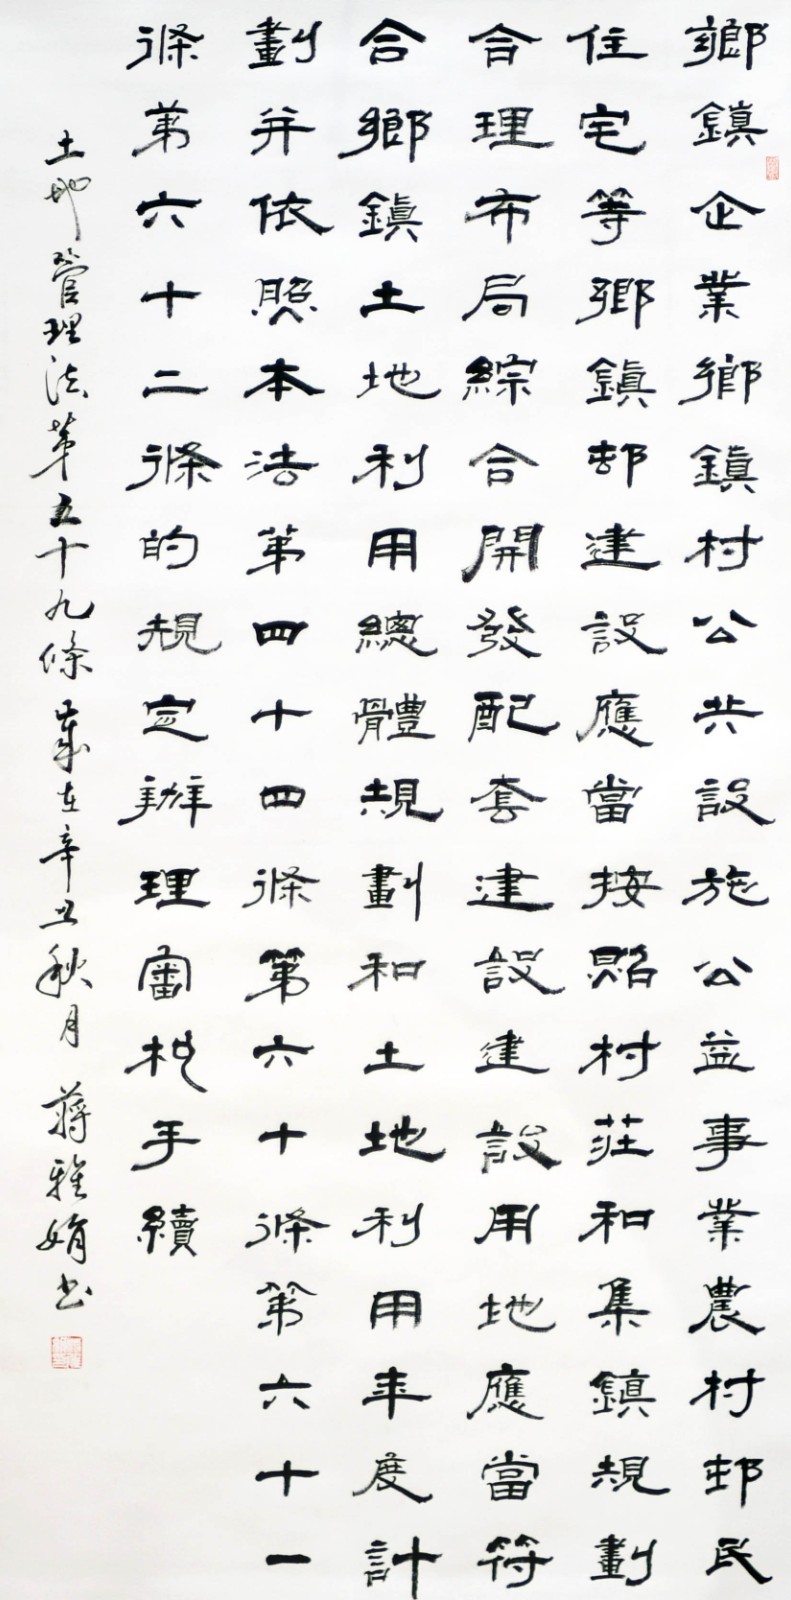 鄉鎮企業鄉鎮村公共設施公益事業農村邨民
住宅等鄉鎮邨建設應當按照村莊和集鎮規劃
合理布局綜合開發配套建設建設用地應當符
合鄉鎮土地利用總體規劃和土地利用年度計
劃并依照本法第四十四條第六十條第六十一
條第六十二條的規定辦理審批手續
土地管理法第五十九條 歲在辛丑秋月 蔣雅娟书